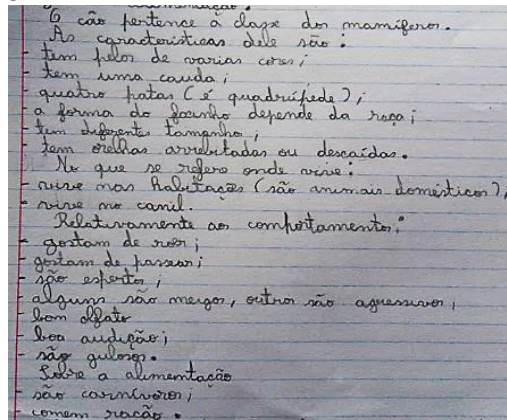 O cão pertence à classe dos mamíferos.
As características dele são:
- tem pelos de varias cores;
- tem uma cauda;
- quatro patas (é quadrúpede);
- a forma do focinho depende da raça;
- tem diferentes tamanho;
- tem orelhas arrebitadas ou descaídas.
No que se refere onde vive:
- vive nas habitações (são animais domésticos),
- vive no canil.
Relativamente ao comportamento:
- gostam de roer;
- gostam de passear;
- são espertos;
- alguns são meigos, outros são agressivos;
- bom olfato
- boa audição;
- são gulosos.
Sobre a alimentação
- são carnívoros;
- comem ração.